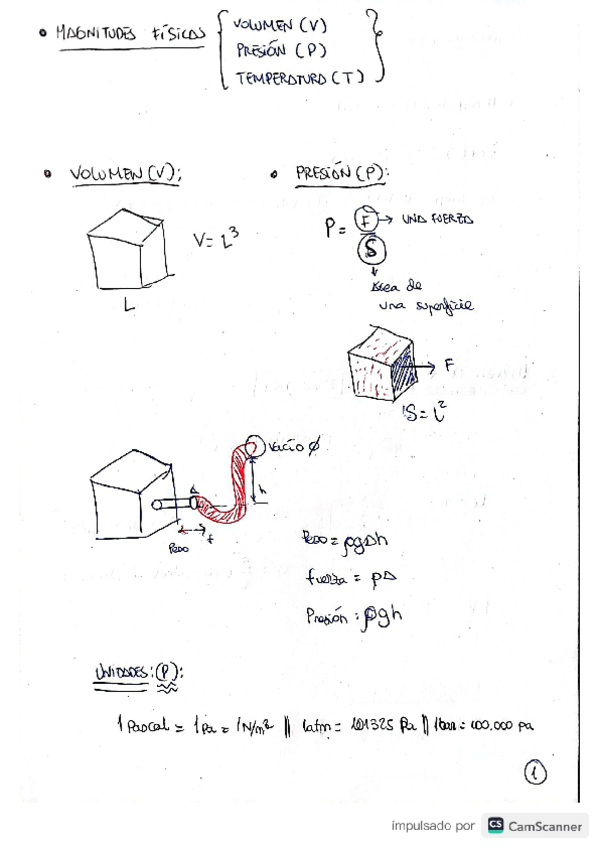 • MAGNITUDES FÍSICAS
VOLUMEN (V)
PRESIÓN (P)
TEMPERATURA (T)
• VOLUMEN (V):
V = L³
L
• PRESIÓN (P):
P = F/S
UNA FUERZA
Área de
una superficie
F
S = L²
vacío ∅
h
A
f
Peso
Peso = ρgAh
fuerza = pA
Presión: ρgh
UNIDADES: (P):
1 Pascal = 1 Pa = 1 N/m² || 1 atm = 101325 Pa || 1 bar = 100.000 Pa
1
impulsado por CS CamScanner